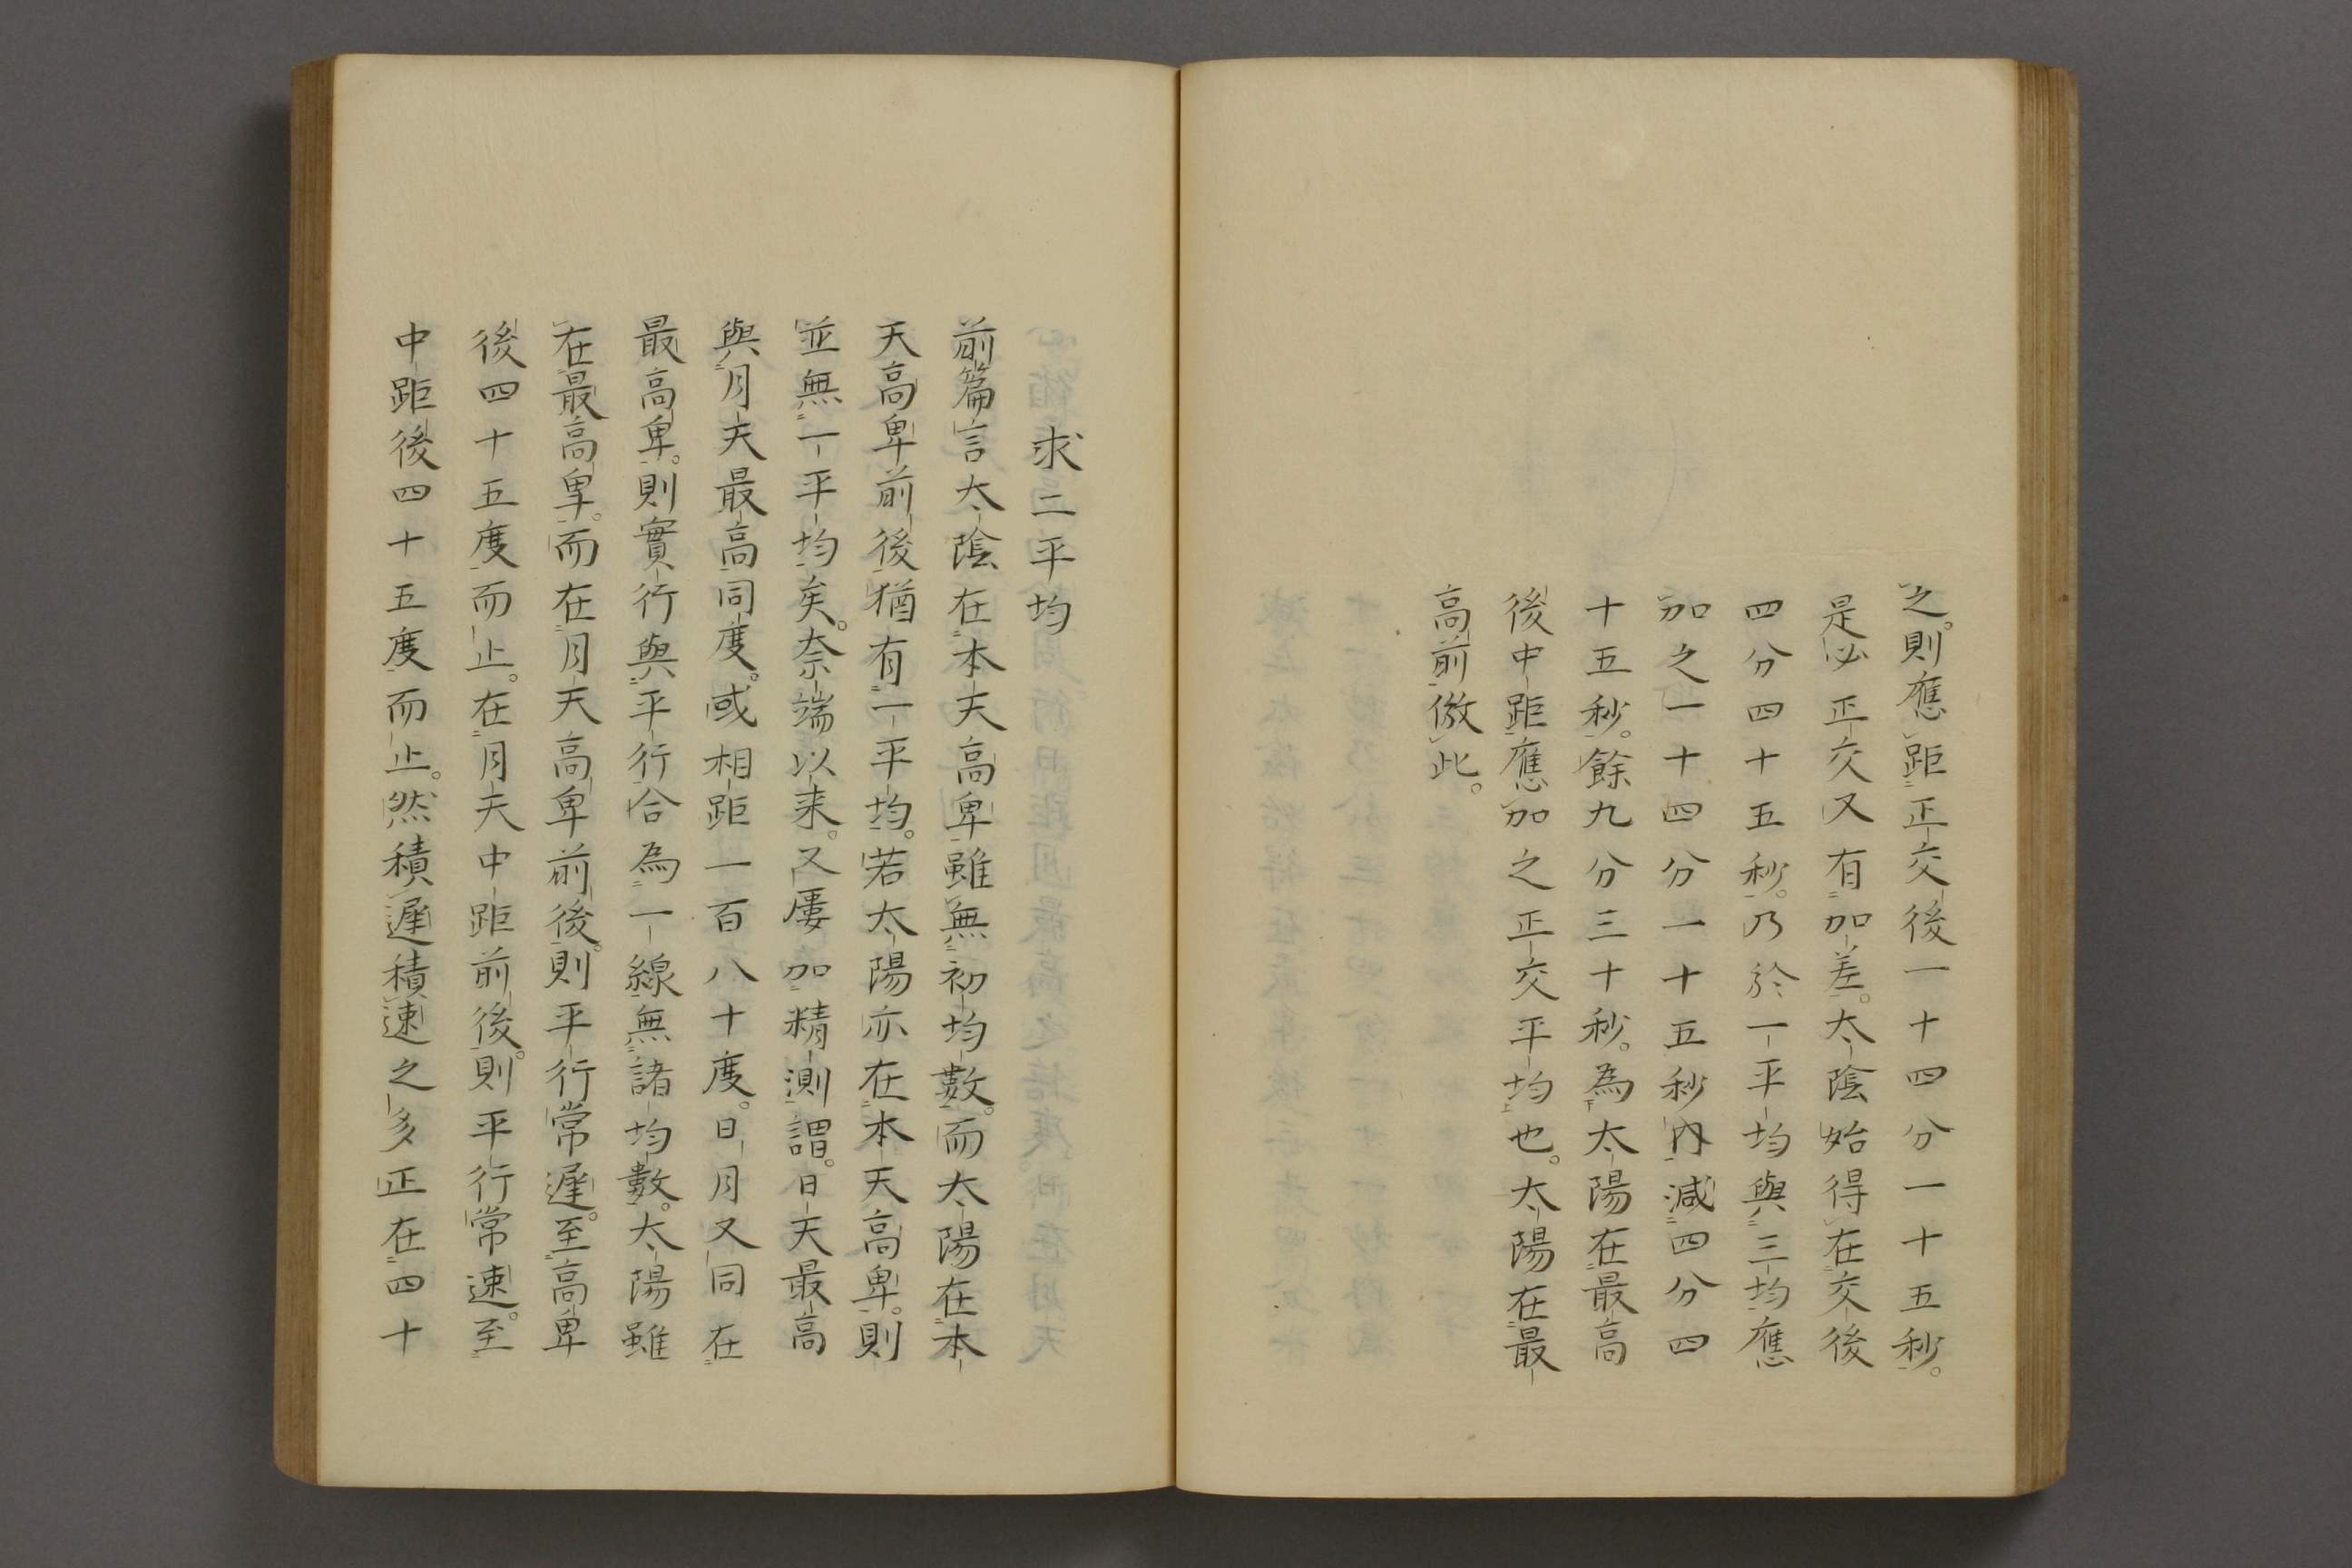 之。則應距正交後一十四分一十五秒。
是必正交又有加差。太陰始得在交後
四分四十五秒。乃於一平均與三均應
加之一十四分一十五秒内減四分四
十五秒。餘九分三十秒。為太陽在最高
後中距應加之正交平均也。太陽在最
高前倣此。
求二平均
前篇言太陰在本天高卑雖無初均數。而太陽在本
天高卑前後猶有一平均。若太陽亦在本天高卑。則
並無一平均矣。奈端以来。又屢加精測謂。日天最高
與月天最高同度。或相距一百八十度。日月又同在
最高卑。則實行與平行合為一線無諸均數。太陽雖
在最高卑。而在月天高卑前後。則平行常遲。至高卑
後四十五度而止。在月天中距前後。則平行常速。至
中距後四十五度而止。然積遲積速之多正在四十